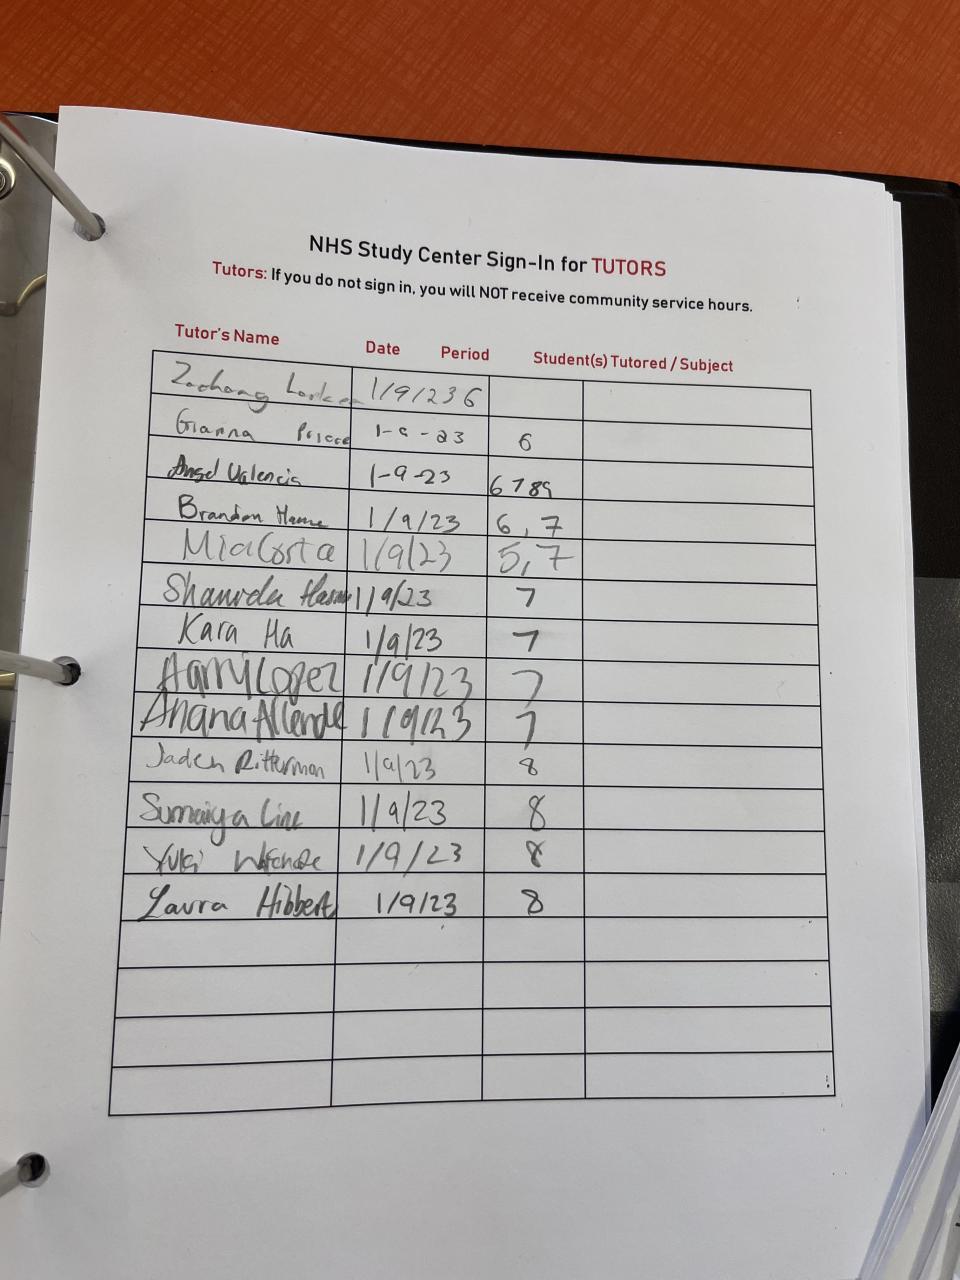 NHS Study Center Sign-In for TUTORS
Tutors: If you do not sign in, you will NOT receive community service hours.
Tutor's Name Date Period Student(s) Tutored / Subject
1/9/23 6
Gianna 1-9-23 6
Angel Valencia 1-9-23 6789
Brandon 1/9/23 6,7
Mia Costa 1/9/23 5,7
1/9/23 7
Kara Ha 1/9/23 7
Harry Lopez 1/9/23 7
Ariana Allende 1/9/23 7
Jaden Ritterman 1/9/23 8
Sumaiya 1/9/23 8
Yuki 1/9/23 8
Laura Hibbert 1/9/23 8